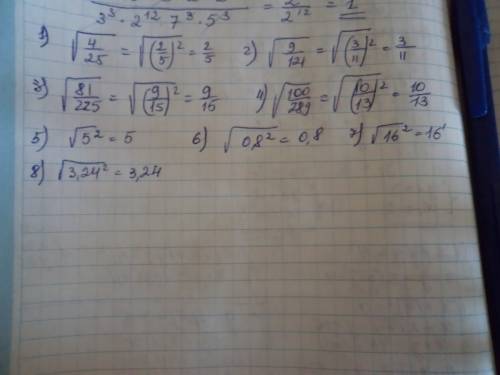 3³ · 2¹² 7³ · 5³ = 2¹² = 1
1) √(4/25) = √(2/5)² = 2/5 2) √(9/121) = √(3/11)² = 3/11
3) √(81/225) = √(9/15)² = 9/15 4) √(100/289) = √(10/13)² = 10/13
5) √5² = 5 6) √0,8² = 0,8 7) √16² = 16
8) √3,24² = 3,24